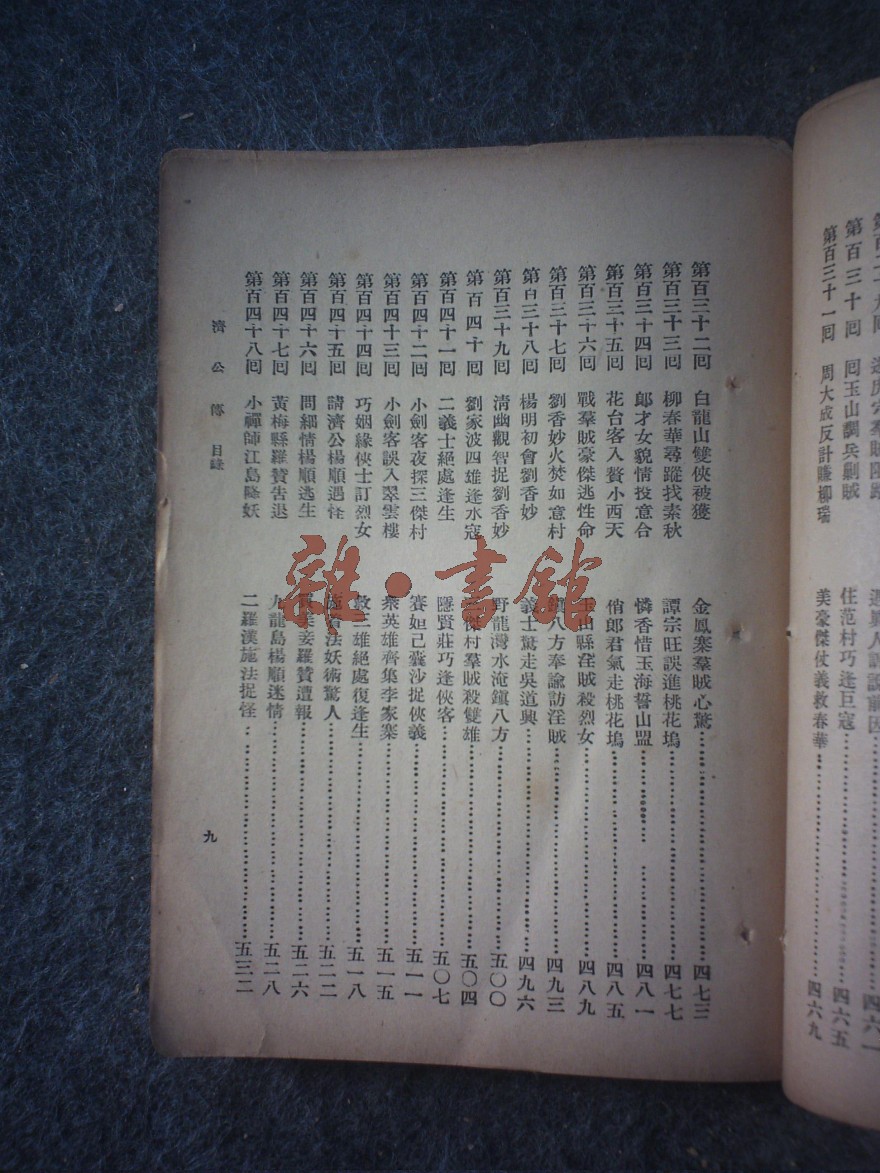 第百三十回　回玉山調兵剿賊　住范村巧逢巨寇　四六五
第百三十一回　周大成反計賺柳瑞　美豪傑仗義救春華　四六九
第百三十二回　白龍山雙俠被獲　金鳳寨羣賊心驚　四七三
第百三十三回　柳春華尋蹤找素秋　譚宗旺誤進桃花塢　四七七
第百三十四回　郞才女貌情投意合　憐香惜玉海誓山盟　四八一
第百三十五回　花台客入贅小西天　俏郎君氣走桃花塢　四八五
第百三十六回　戰羣賊豪傑逃性命　玉山縣淫賊殺烈女　四八九
第百三十七回　劉香妙火焚如意村　鎭八方奉諭訪淫賊　四九三
第百三十八回　楊明初會劉香妙　義士驚走吳道興　四九六
第百三十九回　淸幽觀智捉劉香妙　野龍灣水淹鎭八方　五〇〇
第百四十回　劉家波四雄逢水寇　傑村羣賊殺雙雄　五〇四
第百四十一回　二義士絕處逢生　隱賢莊巧逢俠客　五〇七
第百四十二回　小劍客夜探三傑村　賽妲己囊沙捉俠義　五一一
第百四十三回　小劍客誤入翠雲樓　衆英雄齊集李家寨　五一五
第百四十四回　巧姻緣俠士訂烈女　救三雄絕處復逢生　五一八
第百四十五回　請濟公楊順遇怪　法妖術驚人　五二二
第百四十六回　問細情楊順逃生　妾羅贊遭報　五二六
第百四十七回　黃梅縣羅贊吿退　九龍島楊順迷情　五二八
第百四十八回　小禪師江島降妖　二羅漢施法捉怪　五三二
濟公傳　目錄　九
雜·書館